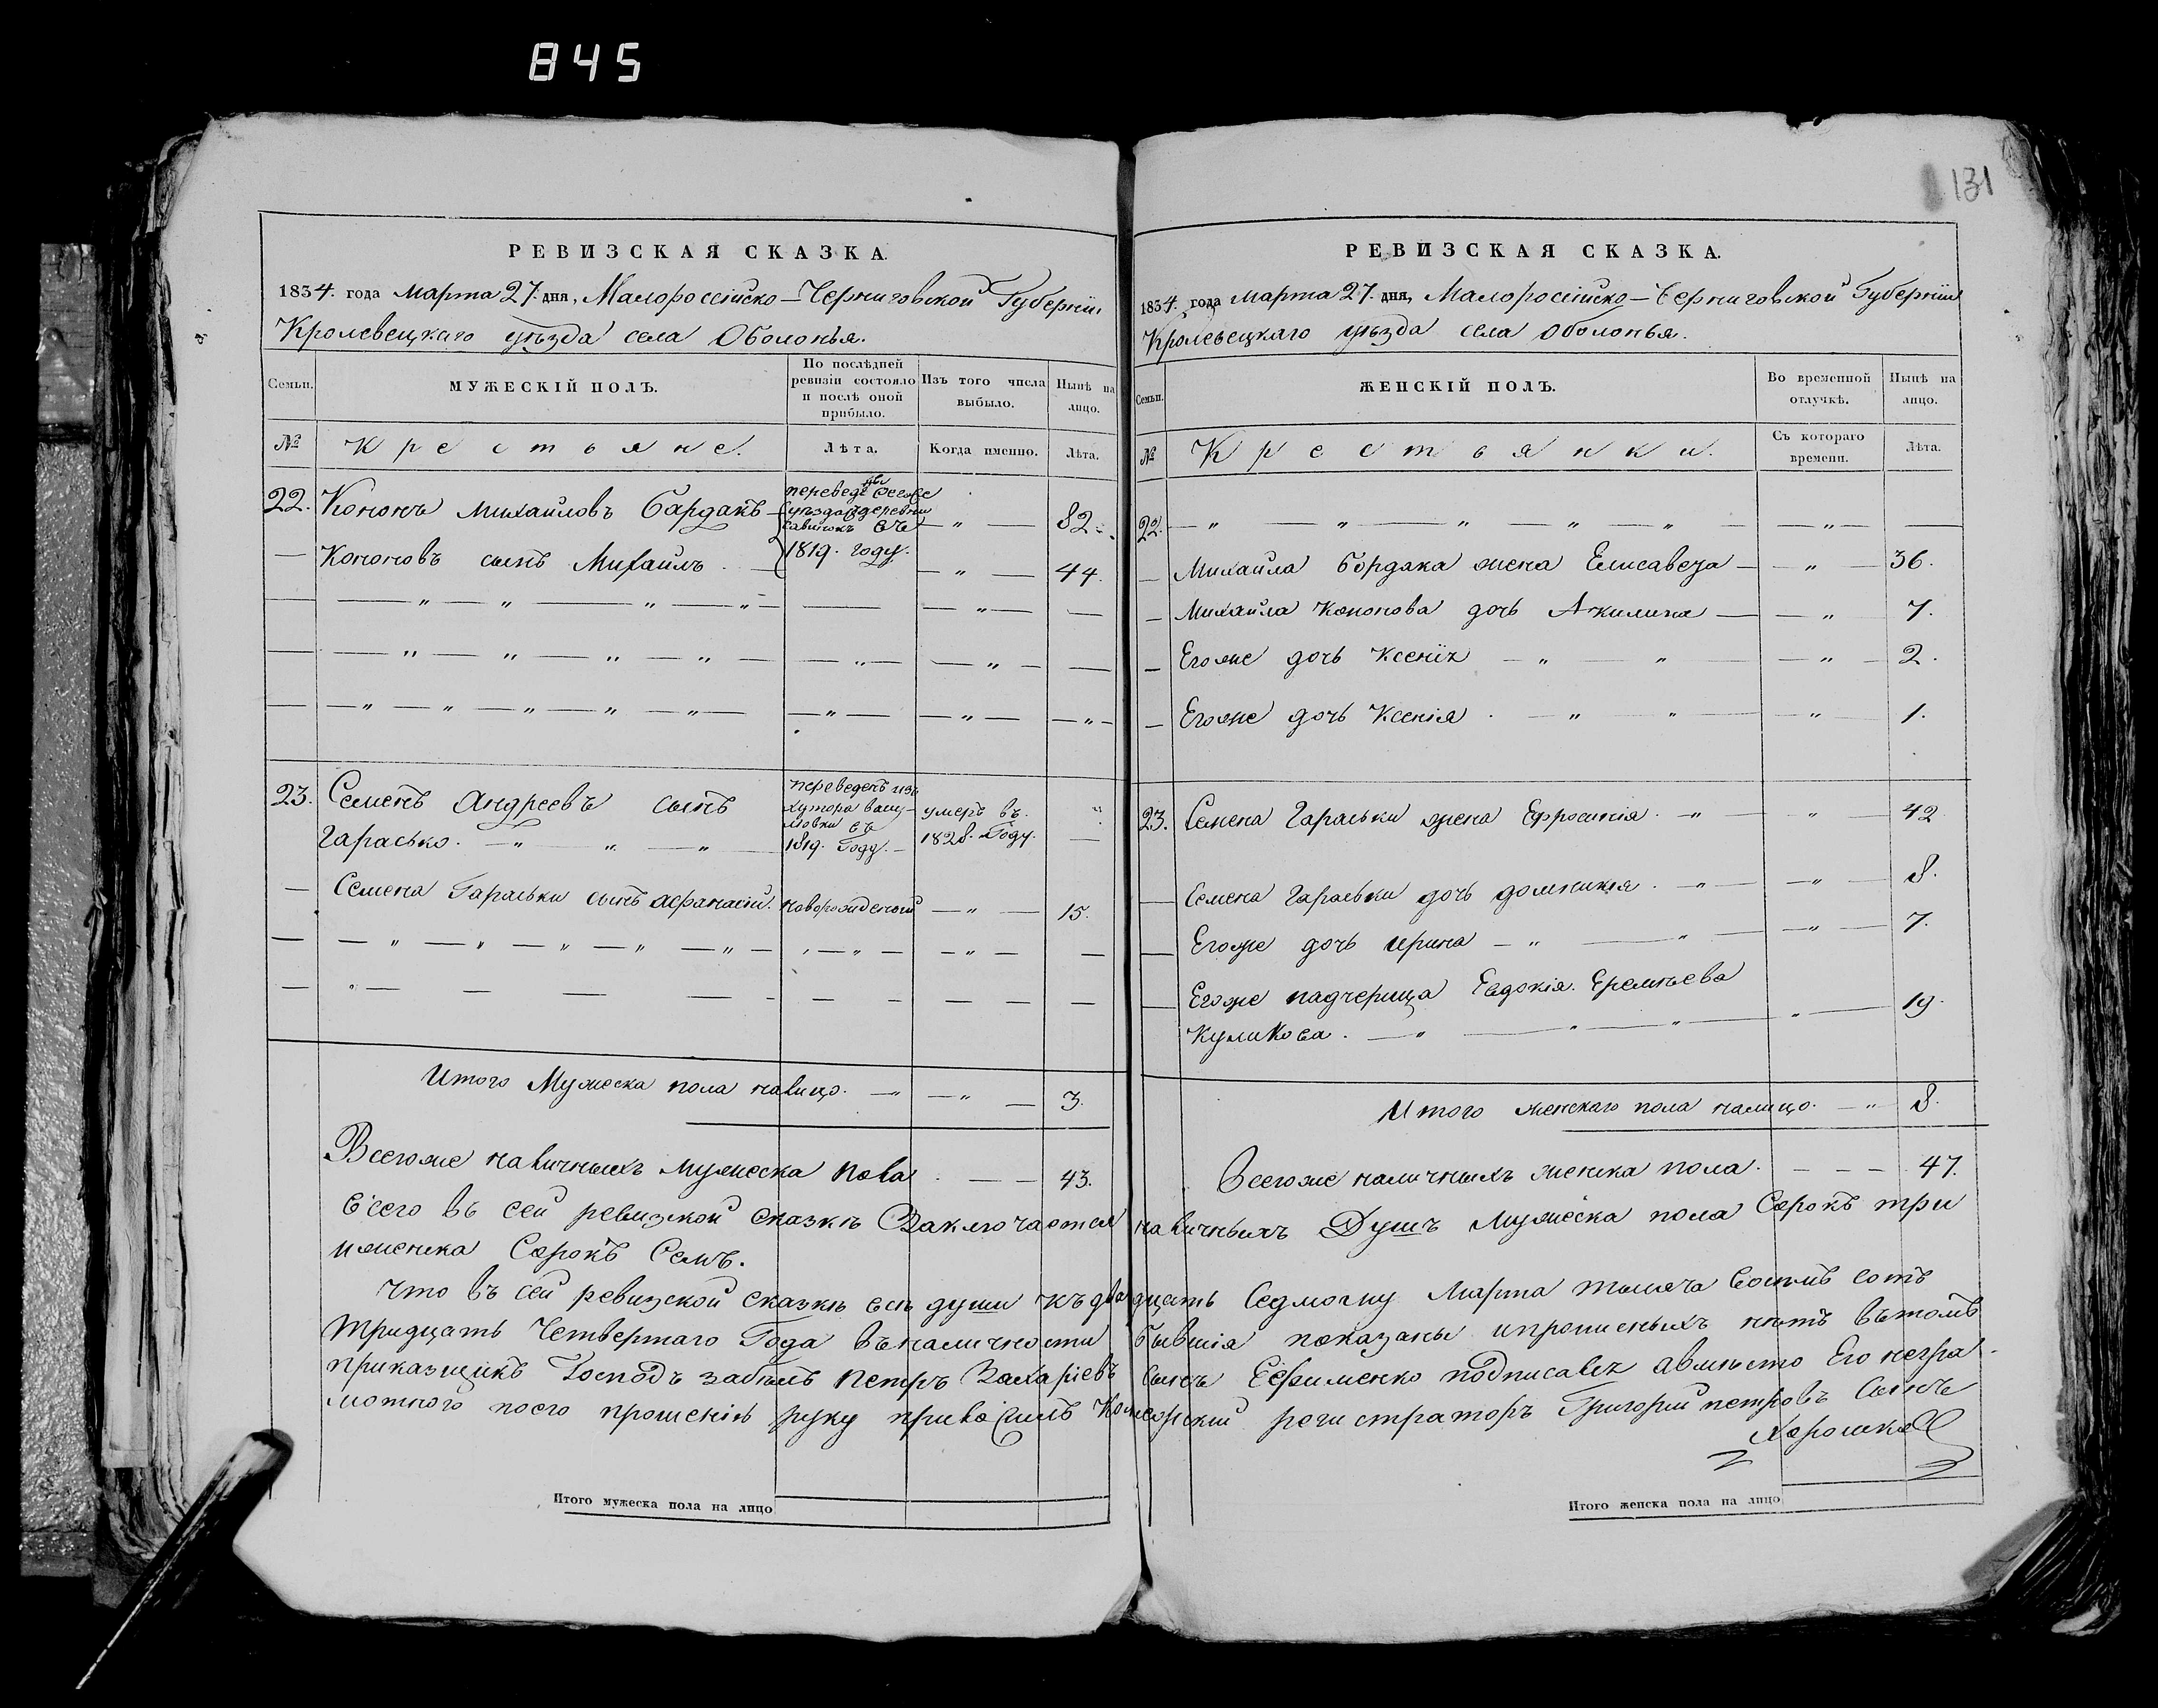 845
131
РЕВИЗСКАЯ СКАЗКА.
1834. года Марта 27. дня, Малороссійско—Черниговской Губерніи
Кролевецкаго уѣзда села Оболонья.
Семьи.
МУЖЕСКІЙ ПОЛЪ.
По послѣдней ревизіи состояло и послѣ оной прибыло.
Изъ того числа выбыло.
Нынѣ на лицо.
№
Крестьяне.
Лѣта.
Когда именно.
Лѣта.
22. Кононъ Михайловъ Бардакъ
82
Кононовъ сынъ Михаилъ
1819. году.
44.
23. Семенъ Андреевъ сынъ
Гарасько.
переведенъ изъ
хутора
1819. Году.
умеръ въ
1828. Году.
Семена Гараськи сынъ Афанасій. новорожденный 15.
Итого Мужеска пола налицо. 3.
Всегоже наличныхъ мужеска пола 43.
РЕВИЗСКАЯ СКАЗКА.
1834. года марта 27. дня, Малоросійско—Черниговской Губерніи
Кролевецкаго уѣзда села Оболонья.
Семьи.
ЖЕНСКІЙ ПОЛЪ.
Во временной отлучкѣ.
Нынѣ на лицо.
№
Крестьянки.
Съ котораго времени.
Лѣта.
22.
Михаила Бордака жена Елисавета 36.
Михаила Кононова дочь Акилина 7.
Егоже дочь Ксенія 2.
Егоже дочь Ксенія 1.
23. Семена Гараськи жена Ефросинія. 42
Семена Гараськи дочь домникія. 8.
Егоже дочь ирина 7.
Егоже падчерица Евдокія. Еремѣева
Куликова. 19.
Итого женскаго пола налицо. 8.
Всегоже наличныхъ женска пола. 47.
Всего въ сей ревизкой сказкѣ Заключается наличныхъ Душъ Мужеска пола Сорокъ три
иженска Сорокъ Семъ.
Что въ сей ревизской сказкѣ всѣ души къ двадцать Седмому Марта тысяча Восемъ сотъ
Тридцать Четвертаго Года въналичности бывшія показаны ипрописныхъ нѣтъ вътомъ
приказщикъ Петръ Захаріевъ сынъ Ефименко подписался авмѣсто Его негра-
мотного поего прошенію руку приложилъ регистраторъ Григорий петровъ Сынъ
Итого мужеска пола на лицо
Итого женска пола на лицо